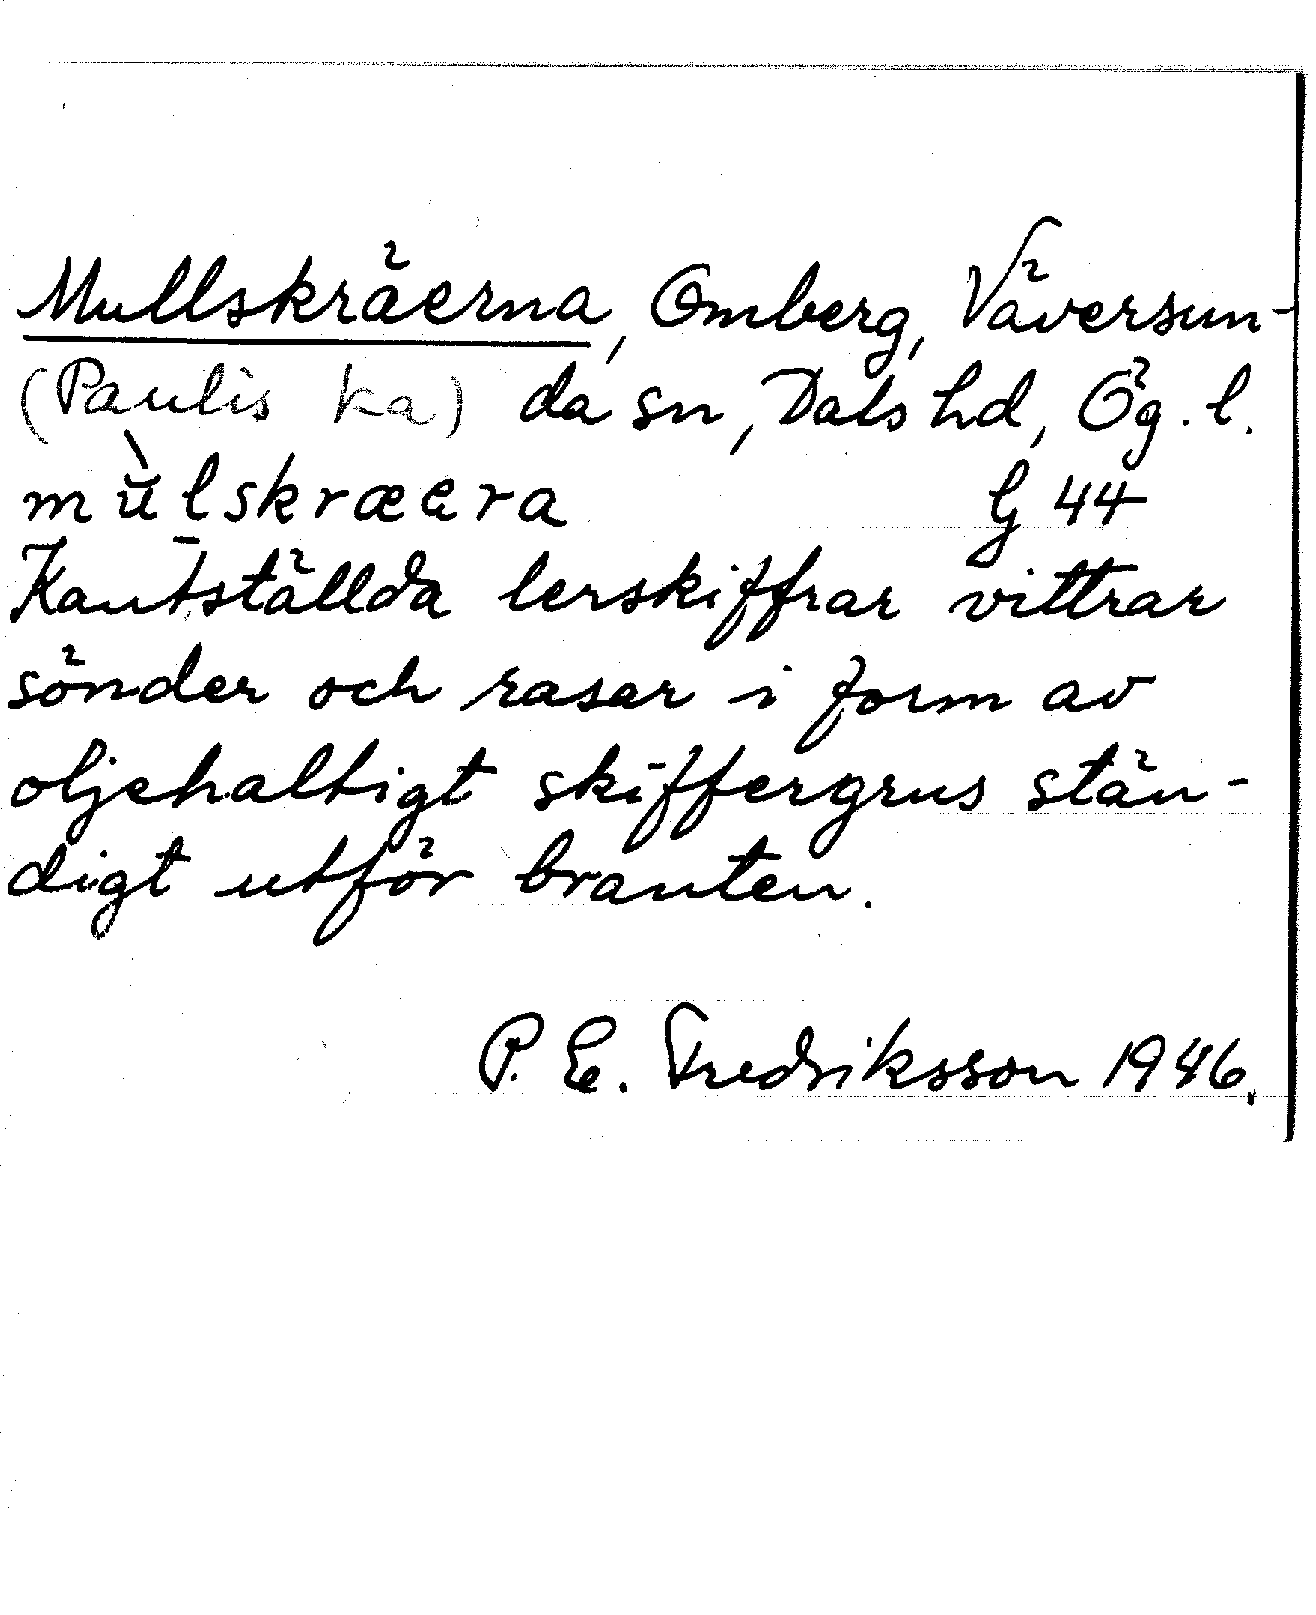 Mullskräerna, Omberg, Väversun-
(Paulis ka) da sn, Dals hd, Ög. l.
mùlskræera G 44
Kantställda lerskiffrar vittrar
sönder och rasar i form av
oljehaltigt skiffergrus stän-
digt utför branten.
P. E. Fredriksson 1946.